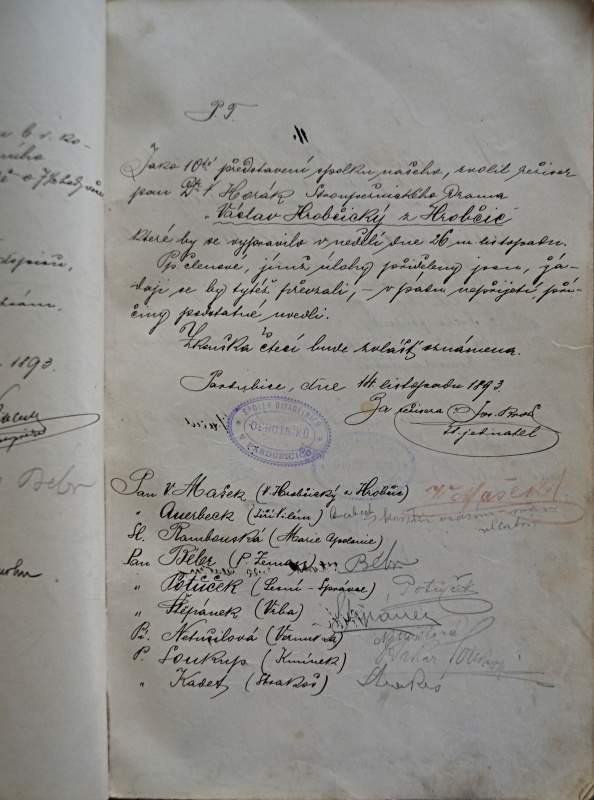 P. T.
Jako 10té představení spolku našeho, zvolil režiser
pan Dr. V. Horák Stroupežnického Drama
„Václav Hrobčický z Hrobčic
které by se vypravilo v neděli dne 26 m. listopadu.
Pp. členové, jimž úlohy přiděleny jsou, žá-
dají se by tytéž převzali, – v pádu nepřijetí, pří-
činy podstatně uvedli.
Zkouška čtecí bude zvlášť oznámena.
Pardubice, dne 14 listopadu 1893.
Za režisera
jednatel
SPOLEK DIVADELNÍCH
OCHOTNÍKŮ
V PARDUBICÍCH
Pan V. Mašek (V. Hrobčický z Hrobčic) V Mašek
„ Auerbeck Auerbeck
Sl. Rambouská (Marie Apolonie)
Pan Bébr (P. Zeman) Bébr
„ Potůček (Lesní-Správce) Potůček
„ Štěpánek (Vrba) Štěpánek
B. Netušilová
P. Soukup (Kmínek) Soukup
„ Kadeř (Strakoš) Strakoš
1893.
Bébr